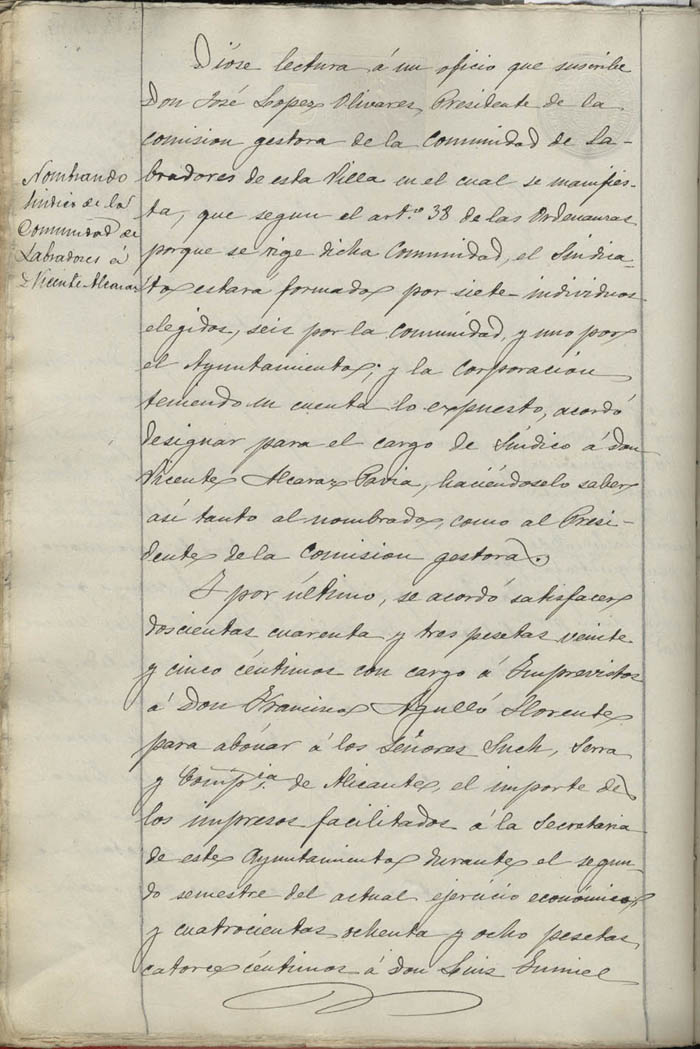 Nombrando
Síndico de la
Comunidad de
Labradores á
D Vicente Alcaraz
Dióse lectura á un oficio que suscribe
Don José Lopez Olivares, Presidente de la
comision gestora de la Comunidad de La-
bradores de esta Villa en el cual se manifies-
ta, que segun el artº 38 de las Ordenanzas
porque se rige dicha Comunidad, el Sindica-
to estara formado por siete individuos
elegidos, seis por la Comunidad, y uno por
el Ayuntamiento; y la Corporación
teniendo en cuenta lo expuesto, acordó
designar para el cargo de Síndico á don
Vicente Alcaraz Pavia, haciéndoselo saber
así tanto al nombrado, como al Presi-
dente de la Comision gestora.
Y por último, se acordó satisfacer
doscientas cuarenta y tres pesetas veinte
y cinco céntimos con cargo á Imprevistos
á Don Francisco Agulló Llorente
para abonar á los Señores Such, Serra
y Compía de Alicante, el importe de
los impresos facilitados á la Secretaria
de este Ayuntamiento durante el segun-
do semestre del actual ejercicio económico
y cuatrocientas ochenta y ocho pesetas
catorce céntimos á don Luis